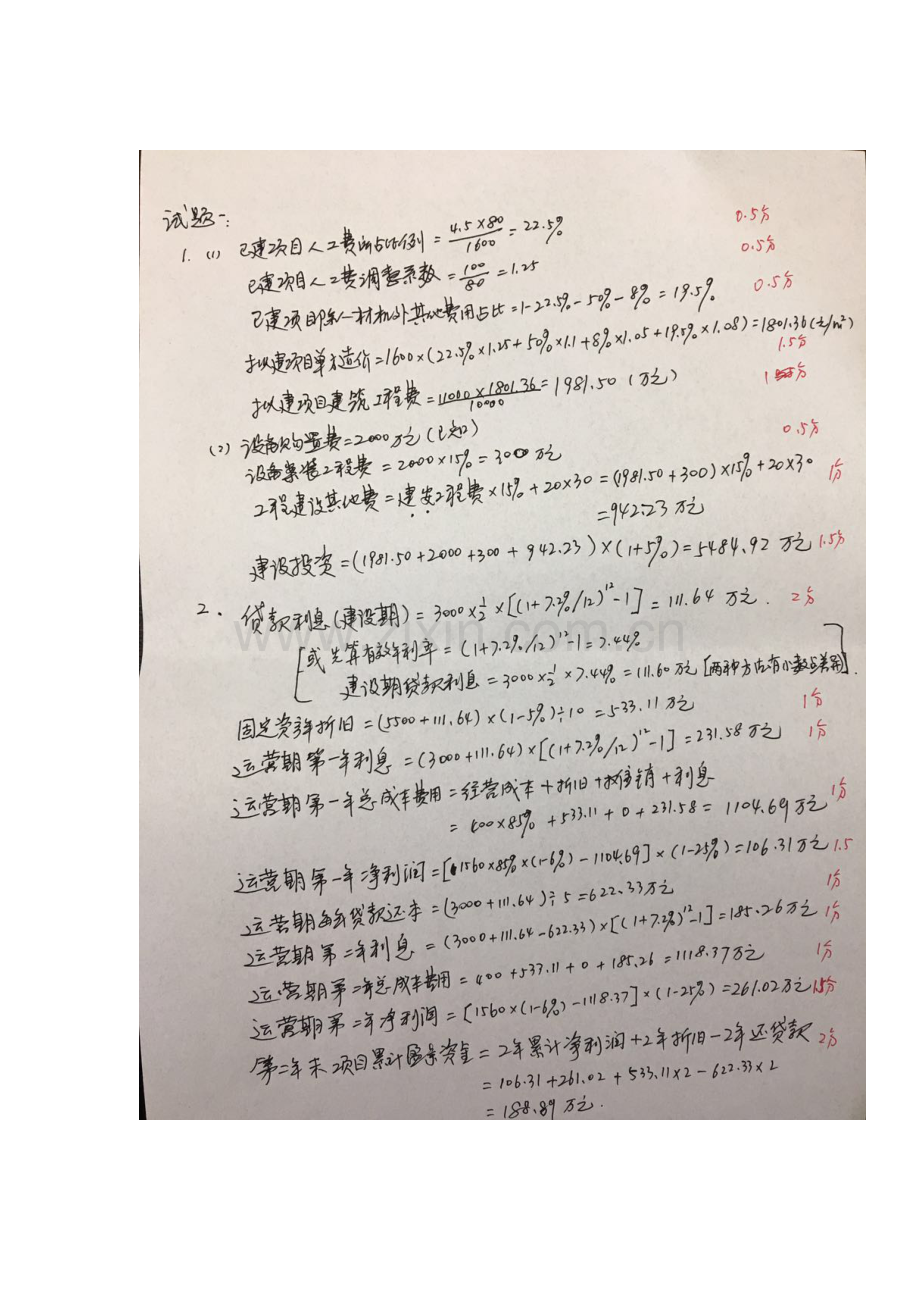 试题一:
1. (1) 已建项目人工费所占比例 = 4.5×80/1600 = 22.5% 0.5分
已建项目人工费调整系数 = 100/80 = 1.25 0.5分
已建项目除人材机外其他费用占比 = 1-22.5%-50%-8% = 19.5% 0.5分
拟建项目单方造价 = 1600×(22.5%×1.25+50%×1.1+8%×1.05+19.5%×1.08) = 1801.36(元/m²) 1.5分
拟建项目建筑工程费 = 11000×1801.36/10000 = 1981.50 (万元) 1分
(2) 设备购置费 = 2000万元 (已知)
设备安装工程费 = 2000×15% = 300万元 0.5分
工程建设其他费 = 建安工程费×15%+20×30 = (1981.50+300)×15%+20×30 1分
= 942.23 万元
建设投资 = (1981.50+2000+300+942.23)×(1+5%) = 5484.92 万元 1.5分
2. 贷款利息(建设期) = 3000×½×[(1+7.2%/12)¹²-1] = 111.64 万元. 2分
[或先算有效年利率 = (1+7.2%/12)¹²-1 = 7.44%
建设期贷款利息 = 3000×½×7.44% = 111.60万元 [两种方法有小数点差别].
固定资产年折旧 = (5500+111.64)×(1-5%)÷10 = 533.11万元 1分
运营期第一年利息 = (3000+111.64)×[(1+7.2%/12)¹²-1] = 231.58万元 1分
运营期第一年总成本费用 = 经营成本+折旧+摊销+利息
= 400×85%+533.11+0+231.58 = 1104.69万元 1分
运营期第一年净利润 = [1560×85%×(1-6%)-1104.69]×(1-25%) = 106.31万元 1.5
运营期每年贷款还本 = (3000+111.64)÷5 = 622.33万元 1分
运营期第二年利息 = (3000+111.64-622.33)×[(1+7.2%)¹²-1] = 185.26万元 1分
运营期第二年总成本费用 = 400+533.11+0+185.26 = 1118.37万元 1分
运营期第二年净利润 = [1560×(1-6%)-1118.37]×(1-25%) = 261.02万元 1.5分
第二年末项目累计盈余资金 = 2年累计净利润+2年折旧-2年还贷款 2分
= 106.31+261.02+533.11×2-622.33×2
= 188.89 万元.